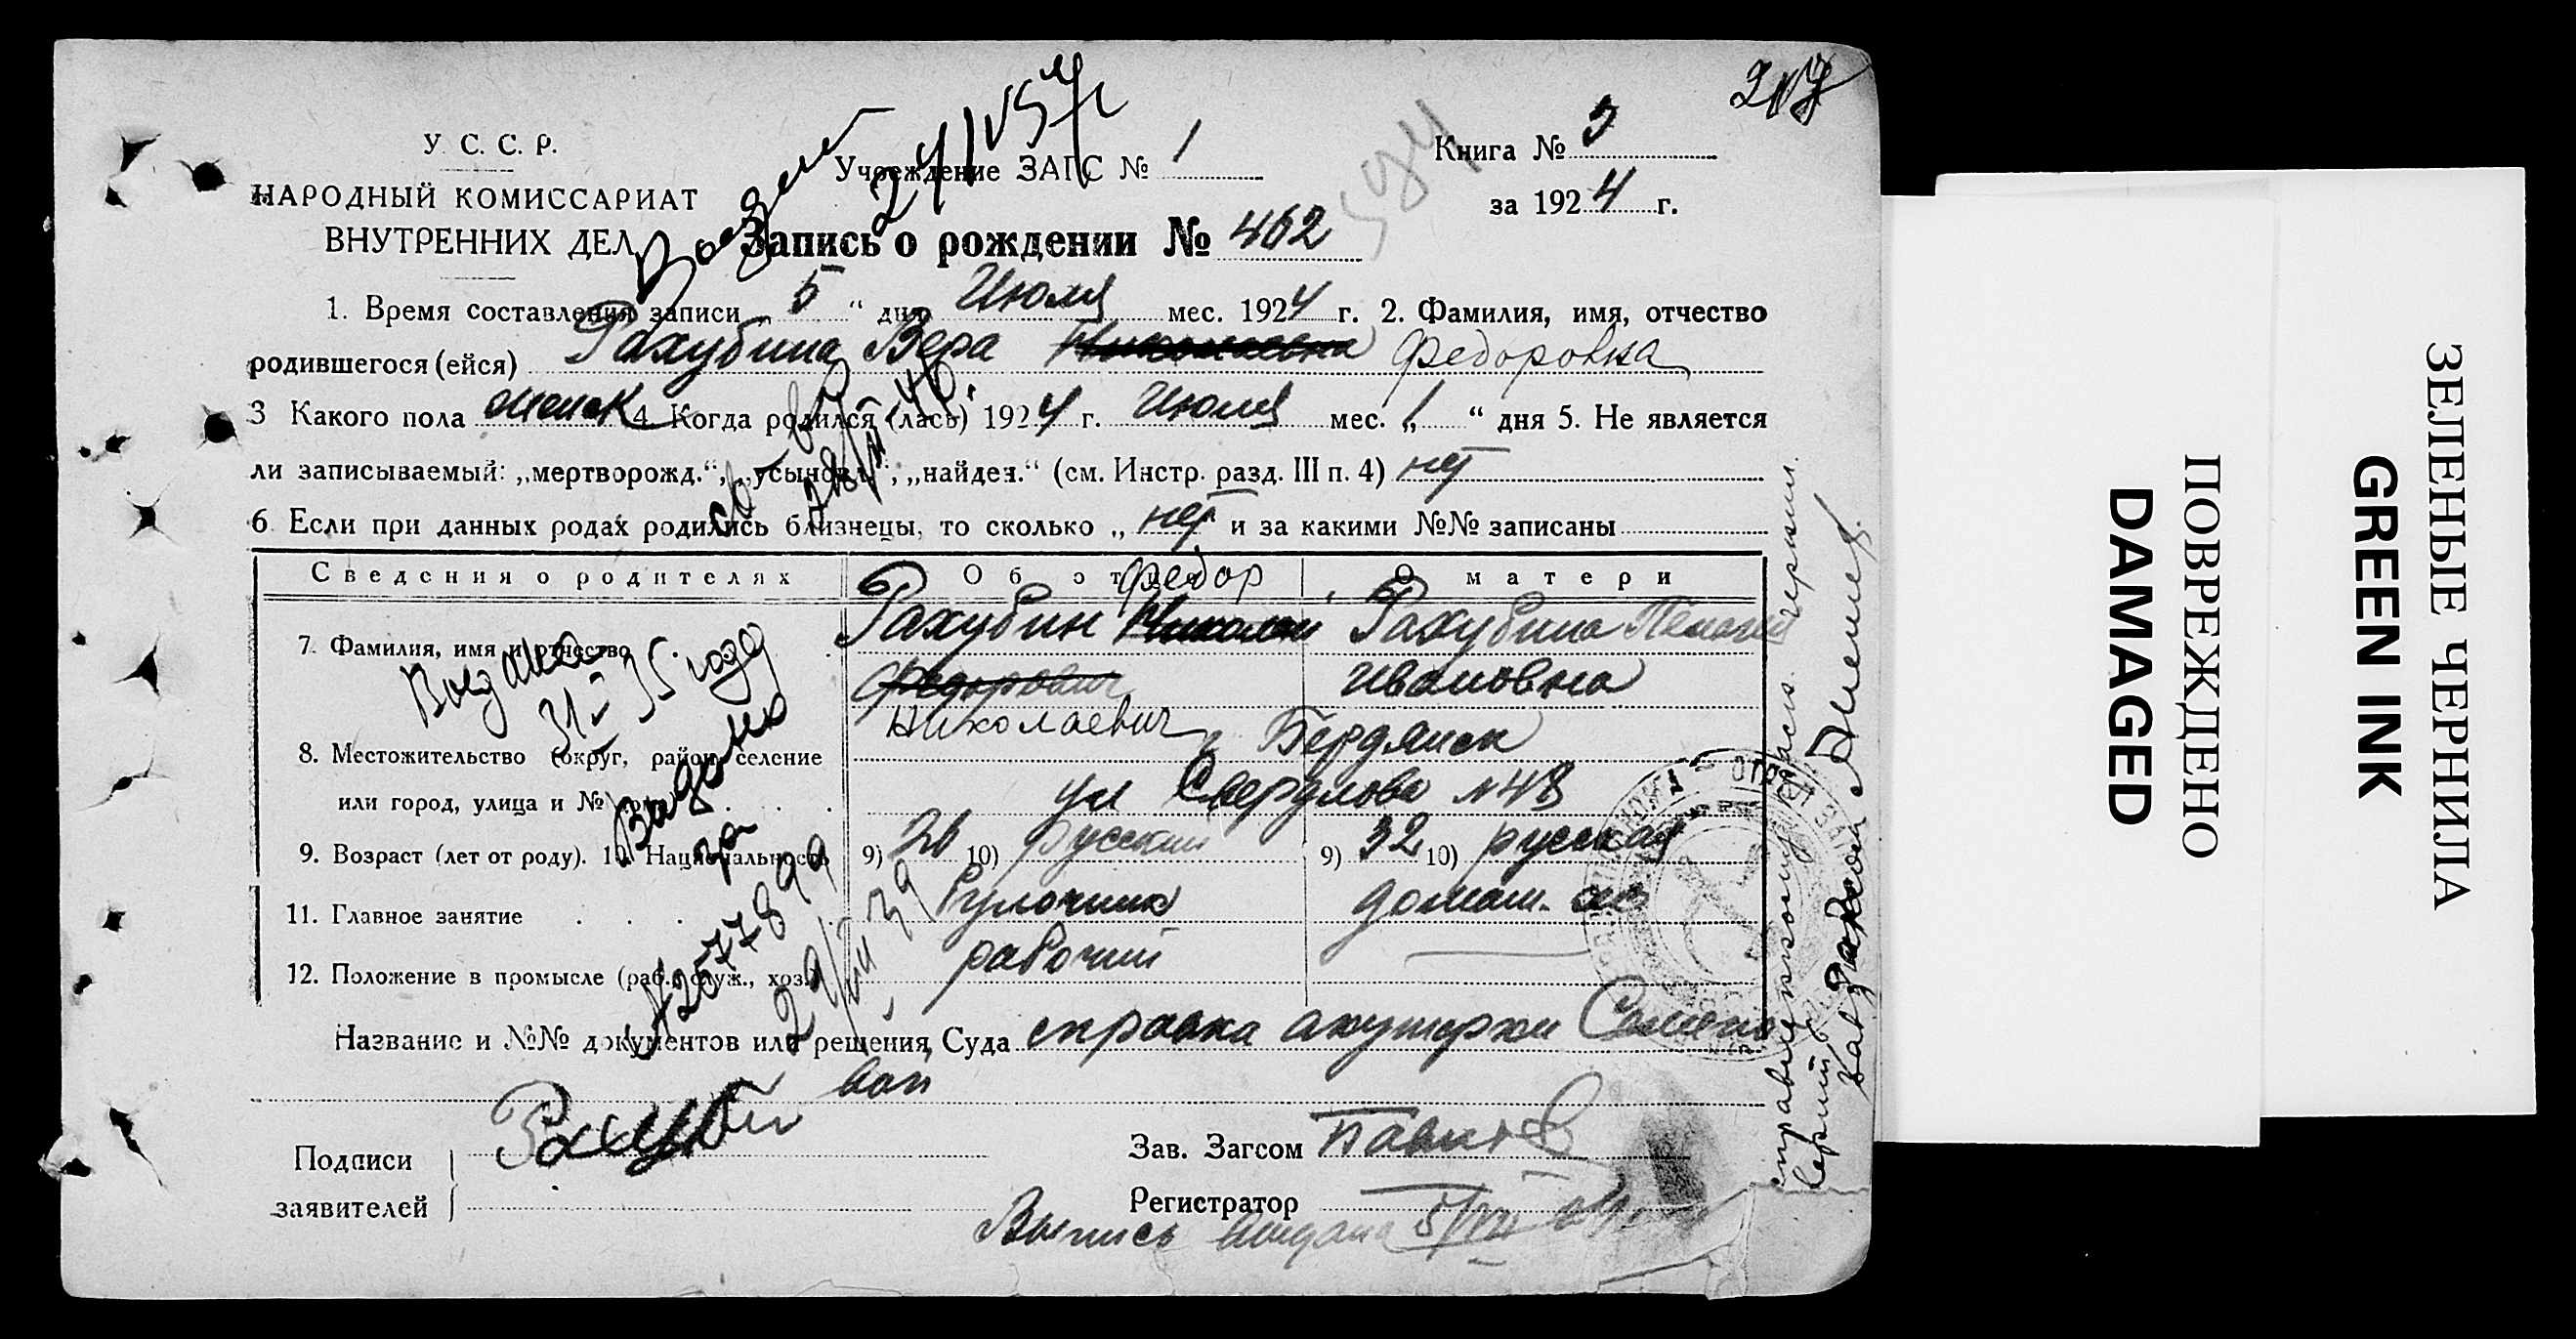 У. С. С. Р.
НАРОДНЫЙ КОМИССАРИАТ
ВНУТРЕННИХ ДЕЛ
Учреждение ЗАГС № 1
Книга № 3
за 1924 г.
Запись о рождении № 462
1. Время составления записи „5“ дня Июля мес. 1924 г. 2. Фамилия, имя, отчество
родившегося (ейся) Рахубина Вера Николаевна Федоровна
3 Какого пола женск 4. Когда родился (лась) 1924 г. Июля мес. „1“ дня 5. Не является
ли записываемый: „мертворожд.“, „усыновл.“, „найден.“ (см. Инстр. разд. III п. 4) нет
6 Если при данных родах родились близнецы, то сколько „нет и за какими №№ записаны
Сведения о родителях Об отце О матери
Федор
7. Фамилия, имя и отчество Рахубин Николай Рахубина Пелагея
Федорович Ивановна
Николаевич
8. Местожительство (округ, район, селение г. Бердянск
или город, улица и № дома) ул Свердлова №48
9. Возраст (лет от роду). 10. Национальность 9) 26 10) Русский 9) 32 10) русская
11. Главное занятие домаш. хоз
12. Положение в промысле (раб., служ., хоз.) рабочий
Название и №№ документов или решения Суда справка акушерки Семено
вой
Подписи
заявителей
Зав. Загсом
Регистратор
Выпись выдана 5/VII
Выдано
31 35 года
Выдано
29/VIII 39
ЗЕЛЕНЫЕ ЧЕРНИЛА
GREEN INK
ПОВРЕЖДЕНО
DAMAGED